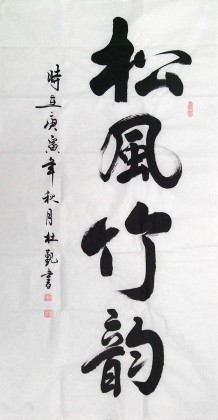 松風竹韵
時在庚寅年秋月杜甄書